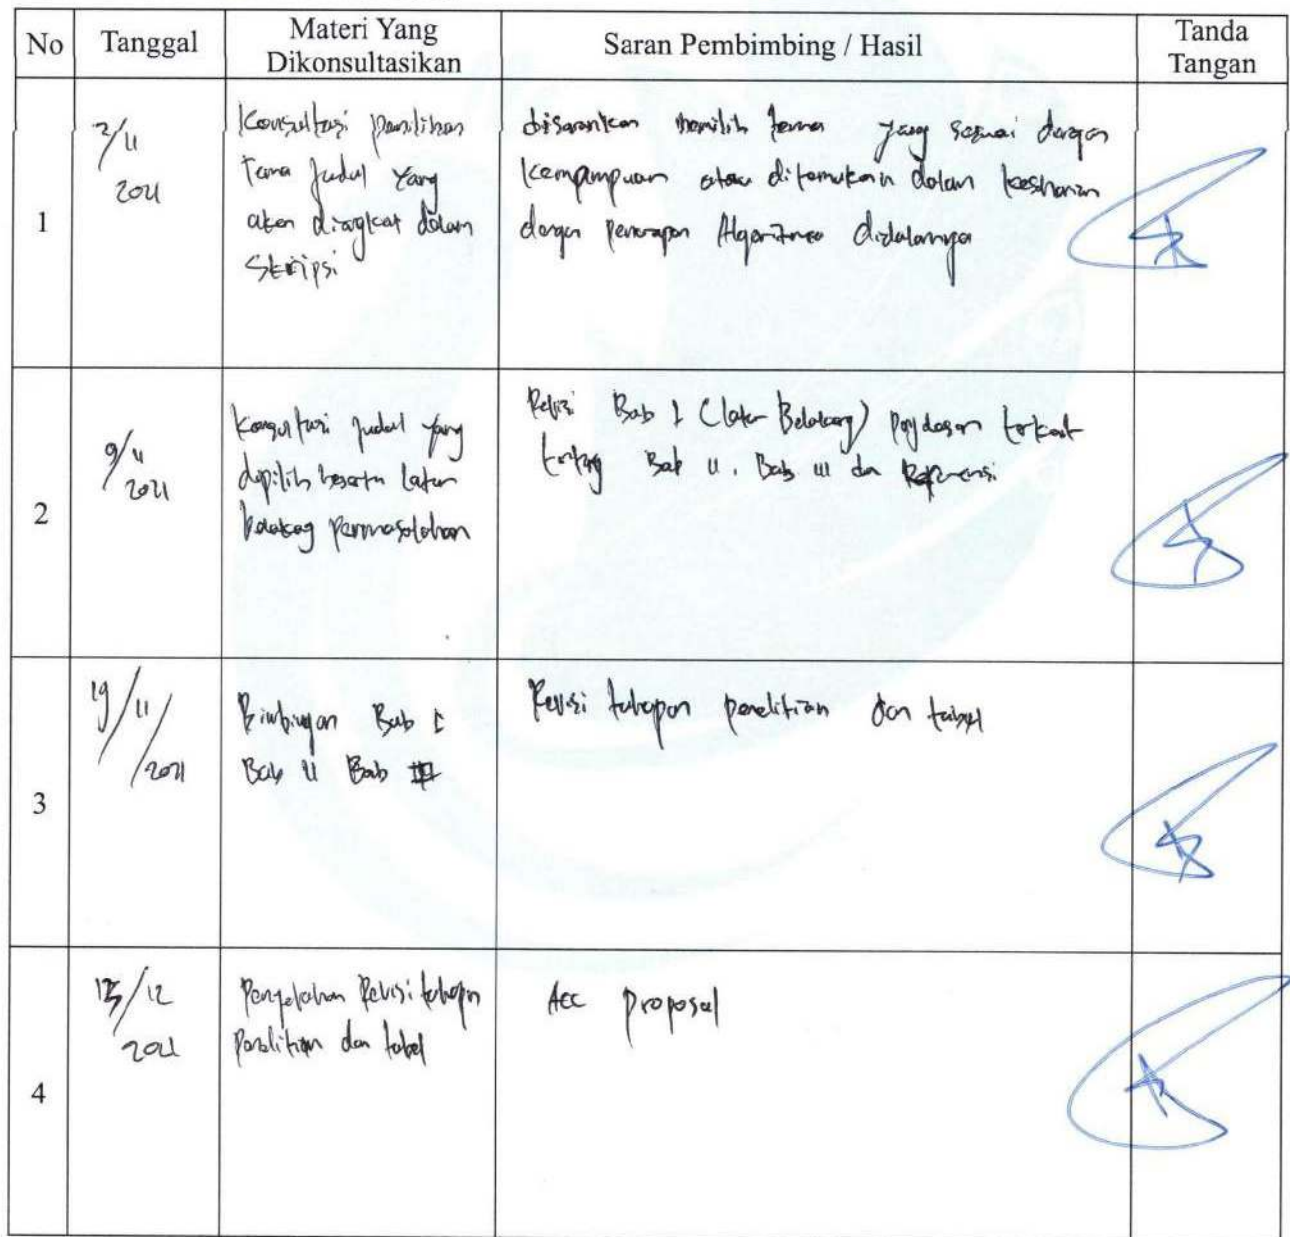 No Tanggal Materi Yang Dikonsultasikan Saran Pembimbing / Hasil Tanda Tangan
1
2/11
2021
Konsultasi pemilihan
Tema Judul Yang
akan diangkat dalam
Skripsi
disarankan memilih tema yang sesuai dengan
kemampuan atau ditemukan dalam
dengan penerapan Algoritma didalamnya
2
9/11
2021
Konsultasi judul yang
dipilih beserta latar
belakang permasalahan
Revisi Bab I (latar Belakang) terkait
tentang Bab II, Bab III dan Referensi
3
19/11/2021
Bimbingan Bab I
Bab II Bab III
Revisi tahapan penelitian dan tabel
4
/12
2021
Revisi tahapan
penelitian dan tabel
Acc proposal